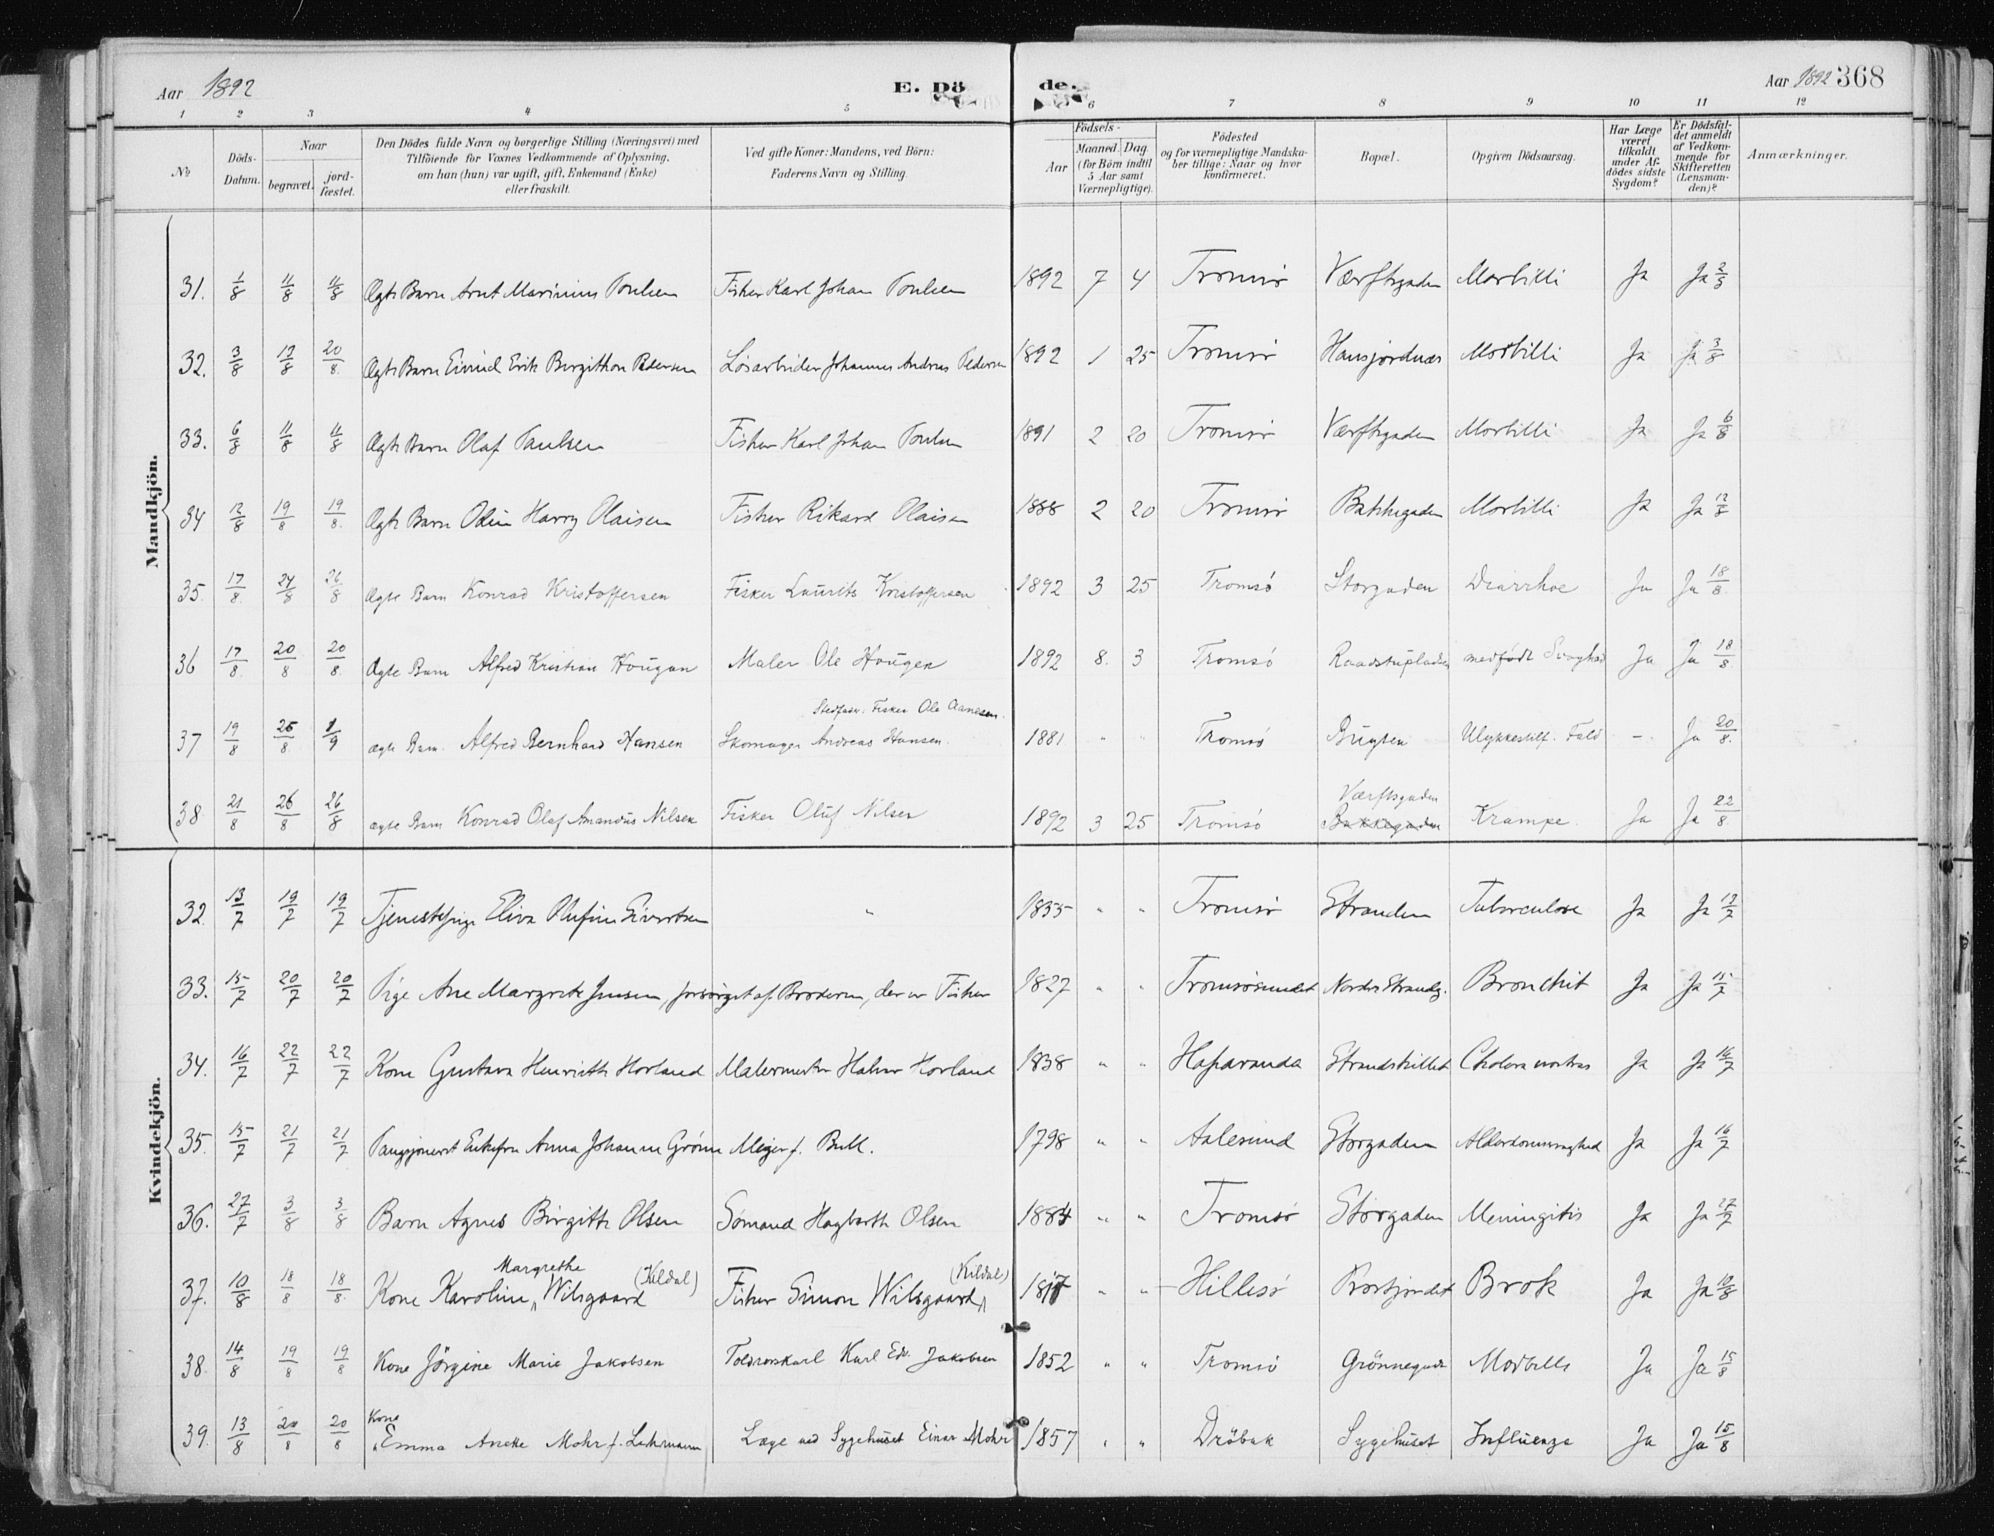 Aar 1892 E. Döde. Aar 1892 368
1 2 3 4 5 6 7 8 9 10 11 12
№ Döds-Datum. Naar begravet. jordfæstet. Den Dödes fulde Navn og borgerlige Stilling (Næringsvei) med Tilföiende for Voxnes Vedkommende af Oplysning, om han (hun) var ugift, gift, Enkemand (Enke) eller fraskilt. Ved gifte Koner: Mandens, ved Börn: Faderens Navn og Stilling. Födsels- Aar Maaned. Dag (for Börn indtil 5 Aar samt Værnepligtige). Födested og for værnepligtige Mandskaber tillige: Naar og hvor konfirmeret. Bopæl. Opgiven Dödsaarsag. Har Læge været tilkaldt under Afdödes sidste Sygdom? Er Dödsfaldet anmeldt af Vedkommende for Skifteretten (Lensmanden)? Anmærkninger.
Mandkjön.
31. 1/8 11/8 11/8 Ægte Barn Arnt Marinius Poulsen Fisker Karl Johan Poulsen 1892 7 4 Tromsø Værftsgaden Morbilli Ja Ja 2/8
32. 3/8 17/8 20/8 Ægte Barn Eivind Erik Birgithon Pedersen Løsarbeider Johannes Andreas Pedersen 1892 1 25 Tromsø Hansjordnæs Morbilli Ja Ja 3/8
33. 6/8 11/8 11/8 Ægte Barn Olaf Paulsen Fisker Karl Johan Poulsen 1891 2 20 Tromsø Værftsgaden Morbilli Ja Ja 6/8
34 12/8 19/8 19/8 Ægte Barn Odin Harry Olaisen Fisker Rikard Olaisen 1888 2 20 Tromsø Bakkegaden Morbilli Ja Ja 12/8
35. 17/8 24/8 26/8 Ægte Barn Konrad Kristoffersen Fisker Laurits Kristoffersen 1892 3 25 Tromsö Storgaden Diarrhoe Ja Ja 18/8
36 17/8 20/8 20/8 Ægte Barn Alfred Kristian Hougan Maler Ole Hougen 1892 8. 3 Tromsö Raadstupladsen medfödt Svaghed Ja Ja 18/8
Stedfader: Fisker Ole Aanesen.
37 19/8 25/8 1/9 ægte Barn Alfred Bernhard Hansen Skomager Andreas Hansen. 1881 " " Tromsö Bugten Ulykkestilf. Fald - Ja 20/8
Værftsgaden
38 21/8 26/8 26/8 ægte Barn Konrad Olaf Amandus Nilsen Fisker Oluf Nilsen 1892 3 25 Tromsö Bakkegaden Krampe. Ja Ja 22/8
Kvindekjön.
32. 13/7 19/7 19/7 Tjenestepige Elisa Olufine Sivertsen " 1855 " " Tromsø Stranden Tuberculose Ja Ja 13/7
33. 15/7 20/7 20/7 Pige Ane Margrete Jensen, forsörget af Broderen, der er Fisker 1827 " " Tromsösundet Nordre Strandg. Bronchit Ja Ja 15/7
34. 16/7 22/7 22/7 Kone Gustava Henriette Horland Malermester Halvor Horland 1838 " " Haparanda Strandskillet Cholera nostras Ja Ja 16/7
35. 15/7 21/7 21/7 Pensjoneret Enkefru Anna Johanne Grönn Meyer f. Bull. 1798 " " Aalesund Storgaden Alderdomssvaghed Ja Ja 16/7
36. 27/7 3/8 3/8 Barn Agnes Birgitte Olsen Sömand Hagbarth Olsen 1884 " " Tromsö Storgaden Meningitis Ja Ja 27/7
Margrethe (Kildal) (Kildal)
37. 10/8 18/8 18/8 Kone Karoline Wilsgaard Fisker Simon Wilsgaard 1817 " " Hillesö Brok Ja Ja 10/8
38. 14/8 19/8 19/8 Kone Jörgine Marie Jakobsen Toldroerskarl Karl Edv. Jakobsen 1852 " " Tromsö Grönnegade Morbilli Ja Ja 15/8
Kone
39. 13/8 20/8 20/8 Emma Aneke Mohr f. Lehrmann Læge ved Sygehuset Einar Mohr 1857 " " Dröbak Sygehuset Influenza Ja Ja 15/8